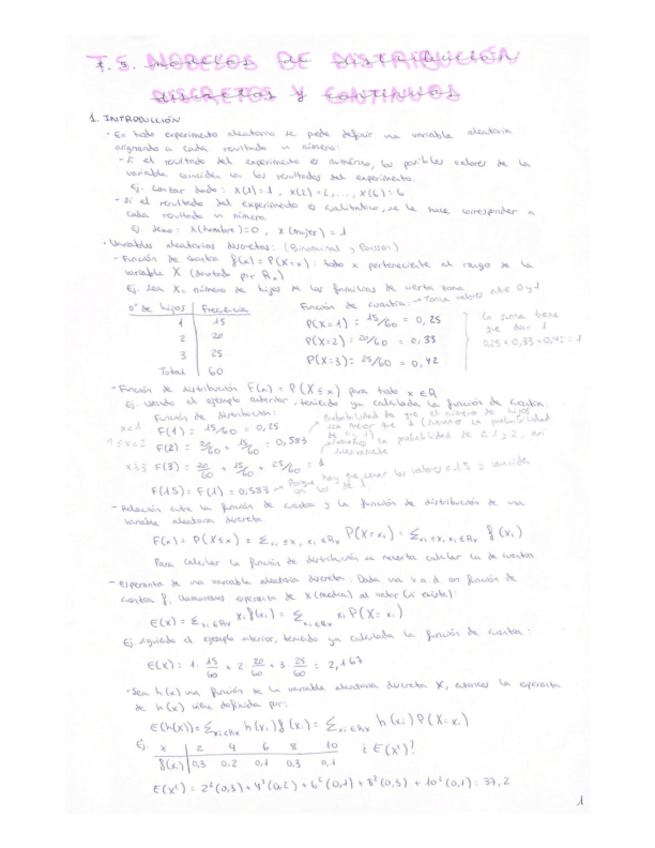 T.5. MODELOS DE DISTRIBUCIÓN
DISCRETOS Y CONTINUOS
1. INTRODUCCIÓN
· En todo experimento aleatorio se puede definir una variable aleatoria
asignando a cada resultado un número:
- Si el resultado del experimento es numérico, los posibles valores de la
variable coinciden con los resultados del experimento.
Ej. Lanzar dado: X(1)=1, X(2)=2,..., X(6)=6
- Si el resultado del experimento es cualitativo, se le hace corresponder a
cada resultado un número
Ej. Sexo: X(hombre)=0, X(mujer)=1
· Variables aleatorias discretas: (Binominal y Poisson)
- Función de cuantía f(x) = P(X=x): todo x perteneciente al rango de la
variable X (denotado por Rx)
Ej. Sea X= número de hijos de las familias de cierta zona
nº de hijos | Frecuencia
1 | 15
2 | 20
3 | 25
Total | 60
Función de cuantía: → Toma valores entre 0 y 1
P(X=1) = 15/60 = 0,25
P(X=2) = 20/60 = 0,33
P(X=3) = 25/60 = 0,42
La suma tiene
que dar 1
0,25+0,33+0,42=1
- Función de distribución F(x) = P(X≤x) para todo x∈R
Ej. usando el ejemplo anterior, teniendo ya calculada la función de cuantía:
Función de distribución:
x<1 F(1) = 15/60 = 0,25
Probabilidad de que el número de hijos
sea menor que 1 (sumamos la probabilidad
de
1≤x<2 F(2) = 20/60 + 15/60 = 0,583
sumamos la probabilidad de 1 y 2, así
sucesivamente
x≥3 F(3) = 20/60 + 15/60 + 25/60 = 1
F(1.5) = F(1) = 0,583 → Porque hay que sumar los valores ≤1.5 y coincide
con los de 1
- Relación entre la función de cuantía y la función de distribución de una
variable aleatoria discreta.
F(x) = P(X≤x) = Σxi≤x, xi∈Rx P(X=xi) = Σxi≤x, xi∈Rx f(xi)
Para calcular la función de distribución se necesita calcular la de cuantía
- Esperanza de una variable aleatoria discreta. Dada una v.a.d con función de
cuantía f, llamamos esperanza de X (media) al valor (si existe):
E(x) = Σxi∈Rx xi f(xi) = Σxi∈Rx xi P(X=xi)
Ej. siguiendo el ejemplo anterior, teniendo ya calculada la función de cuantía:
E(x) = 1· 15/60 + 2· 20/60 + 3· 25/60 = 2,167
- Sea h(x) una función de la variable aleatoria discreta X, entonces la esperanza
de h(x) viene definida por:
E(h(x)) = Σxi∈Rx h(xi) f(xi) = Σxi∈Rx h(xi) P(X=xi)
Ej. x | 2 4 6 8 10 ¿E(X²)?
f(x) | 0,3 0.2 0,1 0,3 0,1
E(x²) = 2²(0,3) + 4²(0,2) + 6²(0,1) + 8²(0,3) + 10²(0,1) = 37,2
1